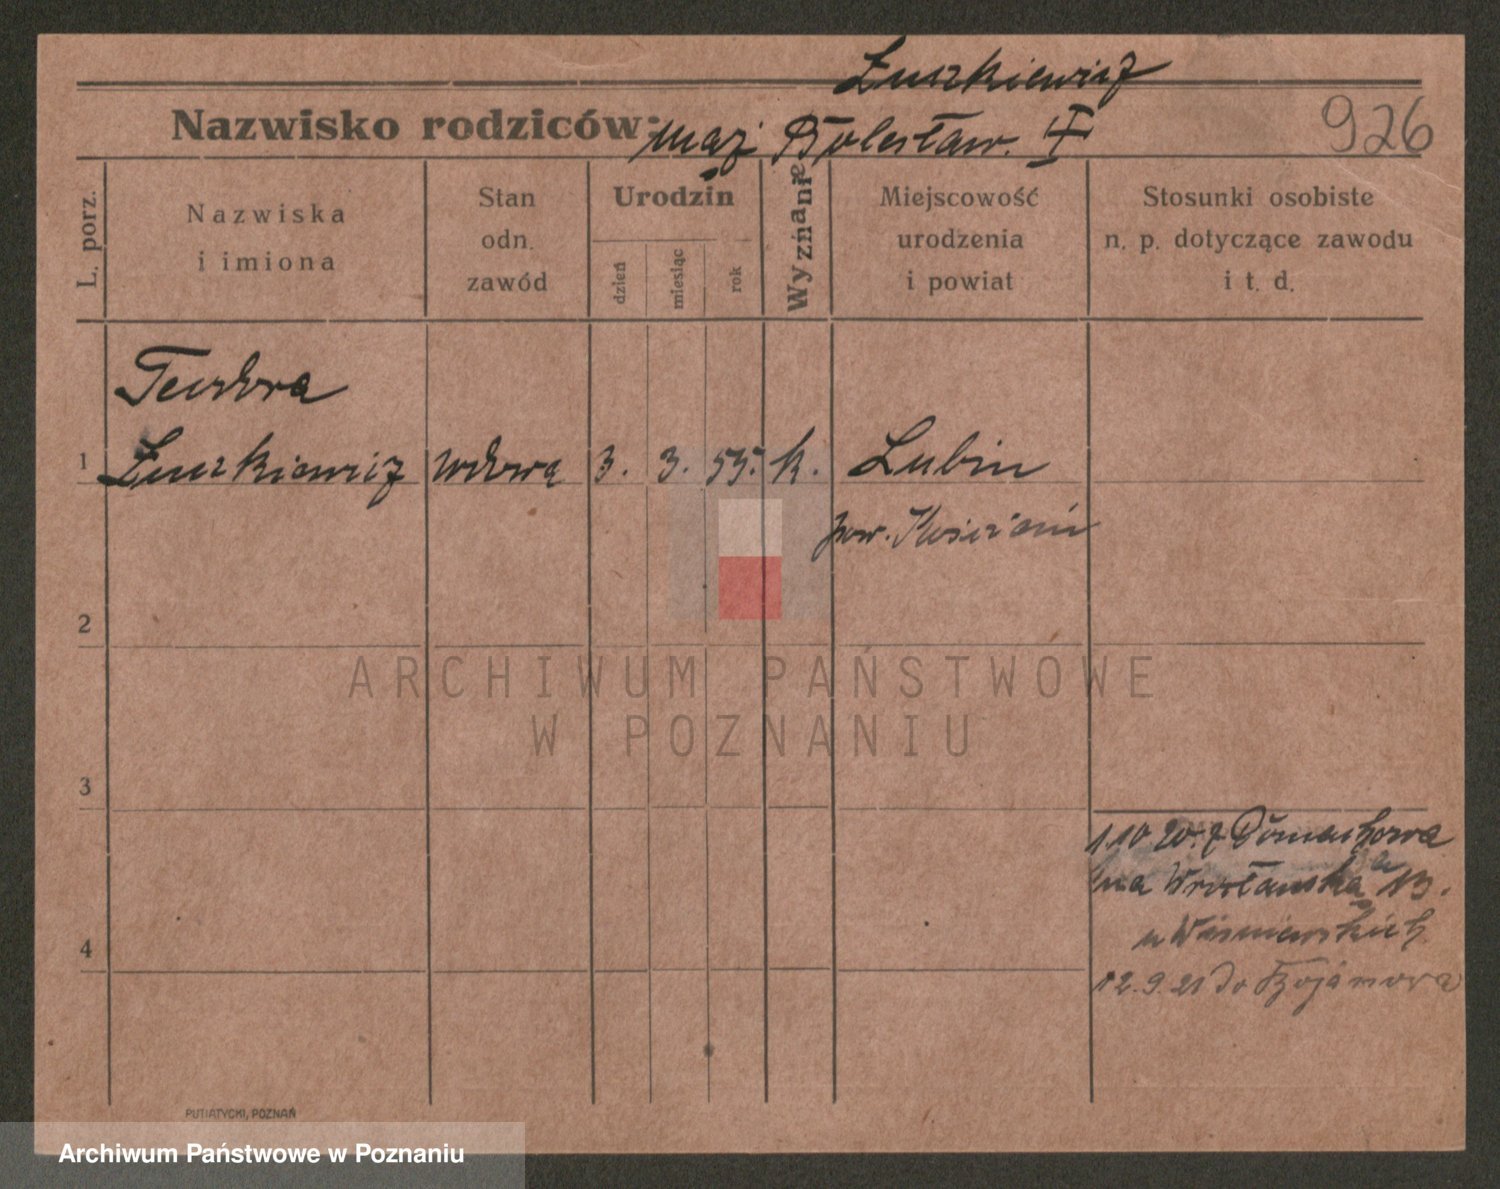 Łuszkiewicz
Nazwisko rodziców: mąż Bolesław. †
926
L. porz.
Nazwiska
i imiona
Stan
odn.
zawód
Urodzin
dzień
miesiąc
rok
Wyznanie
Miejscowość
urodzenia
i powiat
Stosunki osobiste
n. p. dotyczące zawodu
i t. d.
Teodora
1 Łuszkiewicz wdowa 3. 3. 55. k. Lubin
pow. Kościan
2
ARCHIWUM PAŃSTWOWE
W POZNANIU
3
1.10 20. z Domachowa
na Wrocławska 13.
u Wiśniewskich
4
12.9.21 do Bojanowa
PUTIATYCKI, POZNAŃ
Archiwum Państwowe w Poznaniu